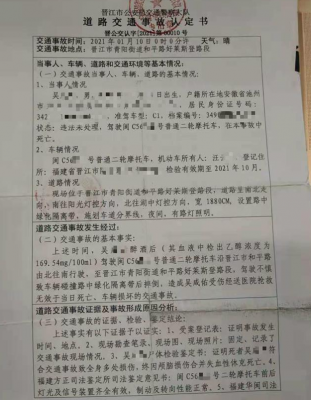 晋江市公安局交通警察大队
道路交通事故认定书
晋公交认字[2021]第00010号
交通事故时间：2021年01月10日0时0分许 天气：晴
交通事故地点：晋江市青阳街道和平路好莱斯登路段
当事人、车辆、道路和交通环境等基本情况：
（一）交通事故当事人、车辆、道路的基本情况
1、当事人
吴 男， 日出生，户籍所在地安徽省池州
居民身份证号码：
342 准驾车型：C1，档案编号：340
状态：违法未处理，驾驶闽C56 号普通二轮摩托车，在本事故中
死亡。
2、车辆情况
闽C56 号普通二轮摩托车，机动车所有人： 登记住
所：福建省晋江市 检验有效期至2021年10月。
3、道路情况
现场位于晋江市青阳街道和平路好莱斯登路段，道路呈南北走
向，南往阳光灯控方向，北往 灯控方向，宽1880CM，设置路中
绿化隔离带，施划车道分界线，夜间，有路灯照明。
道路交通事故发生经过：
（二）交通事故的基本事实：
上述时间，吴 醉酒后（吴血液中检出乙醇浓度为
169.54mg/100ml）驾驶闽C56 号普通二轮摩托车沿晋江市和平路
由北往南行驶，至晋江市青阳街道和平路好莱斯登路段，驾驶不慎
致车辆碰撞路中绿化隔离带后摔倒，造成吴 受伤经送医院抢救
无效于当日死亡、车辆损坏的交通事故。
道路交通事故证据及事故形成原因分析：
（三）交通事故的证据、检验、鉴定结论：
上述事实有以下证据予以证实：1、受案登记表：证明事故发生
时间、地点。2、现场勘查笔录、现场图、现场照片：固定、记录了
交通事故现场情况。3、吴 尸体检验鉴定书：证明死者吴 符
合交通事故致全身多处损伤，终因颅脑损伤合并失血性休克死亡。4、
福建方正司法鉴定所司法鉴定意见书：闽C56 号二轮摩托车前后
灯光及信号装置齐全有效，制动及转向性能正常。5、福建华闽司法